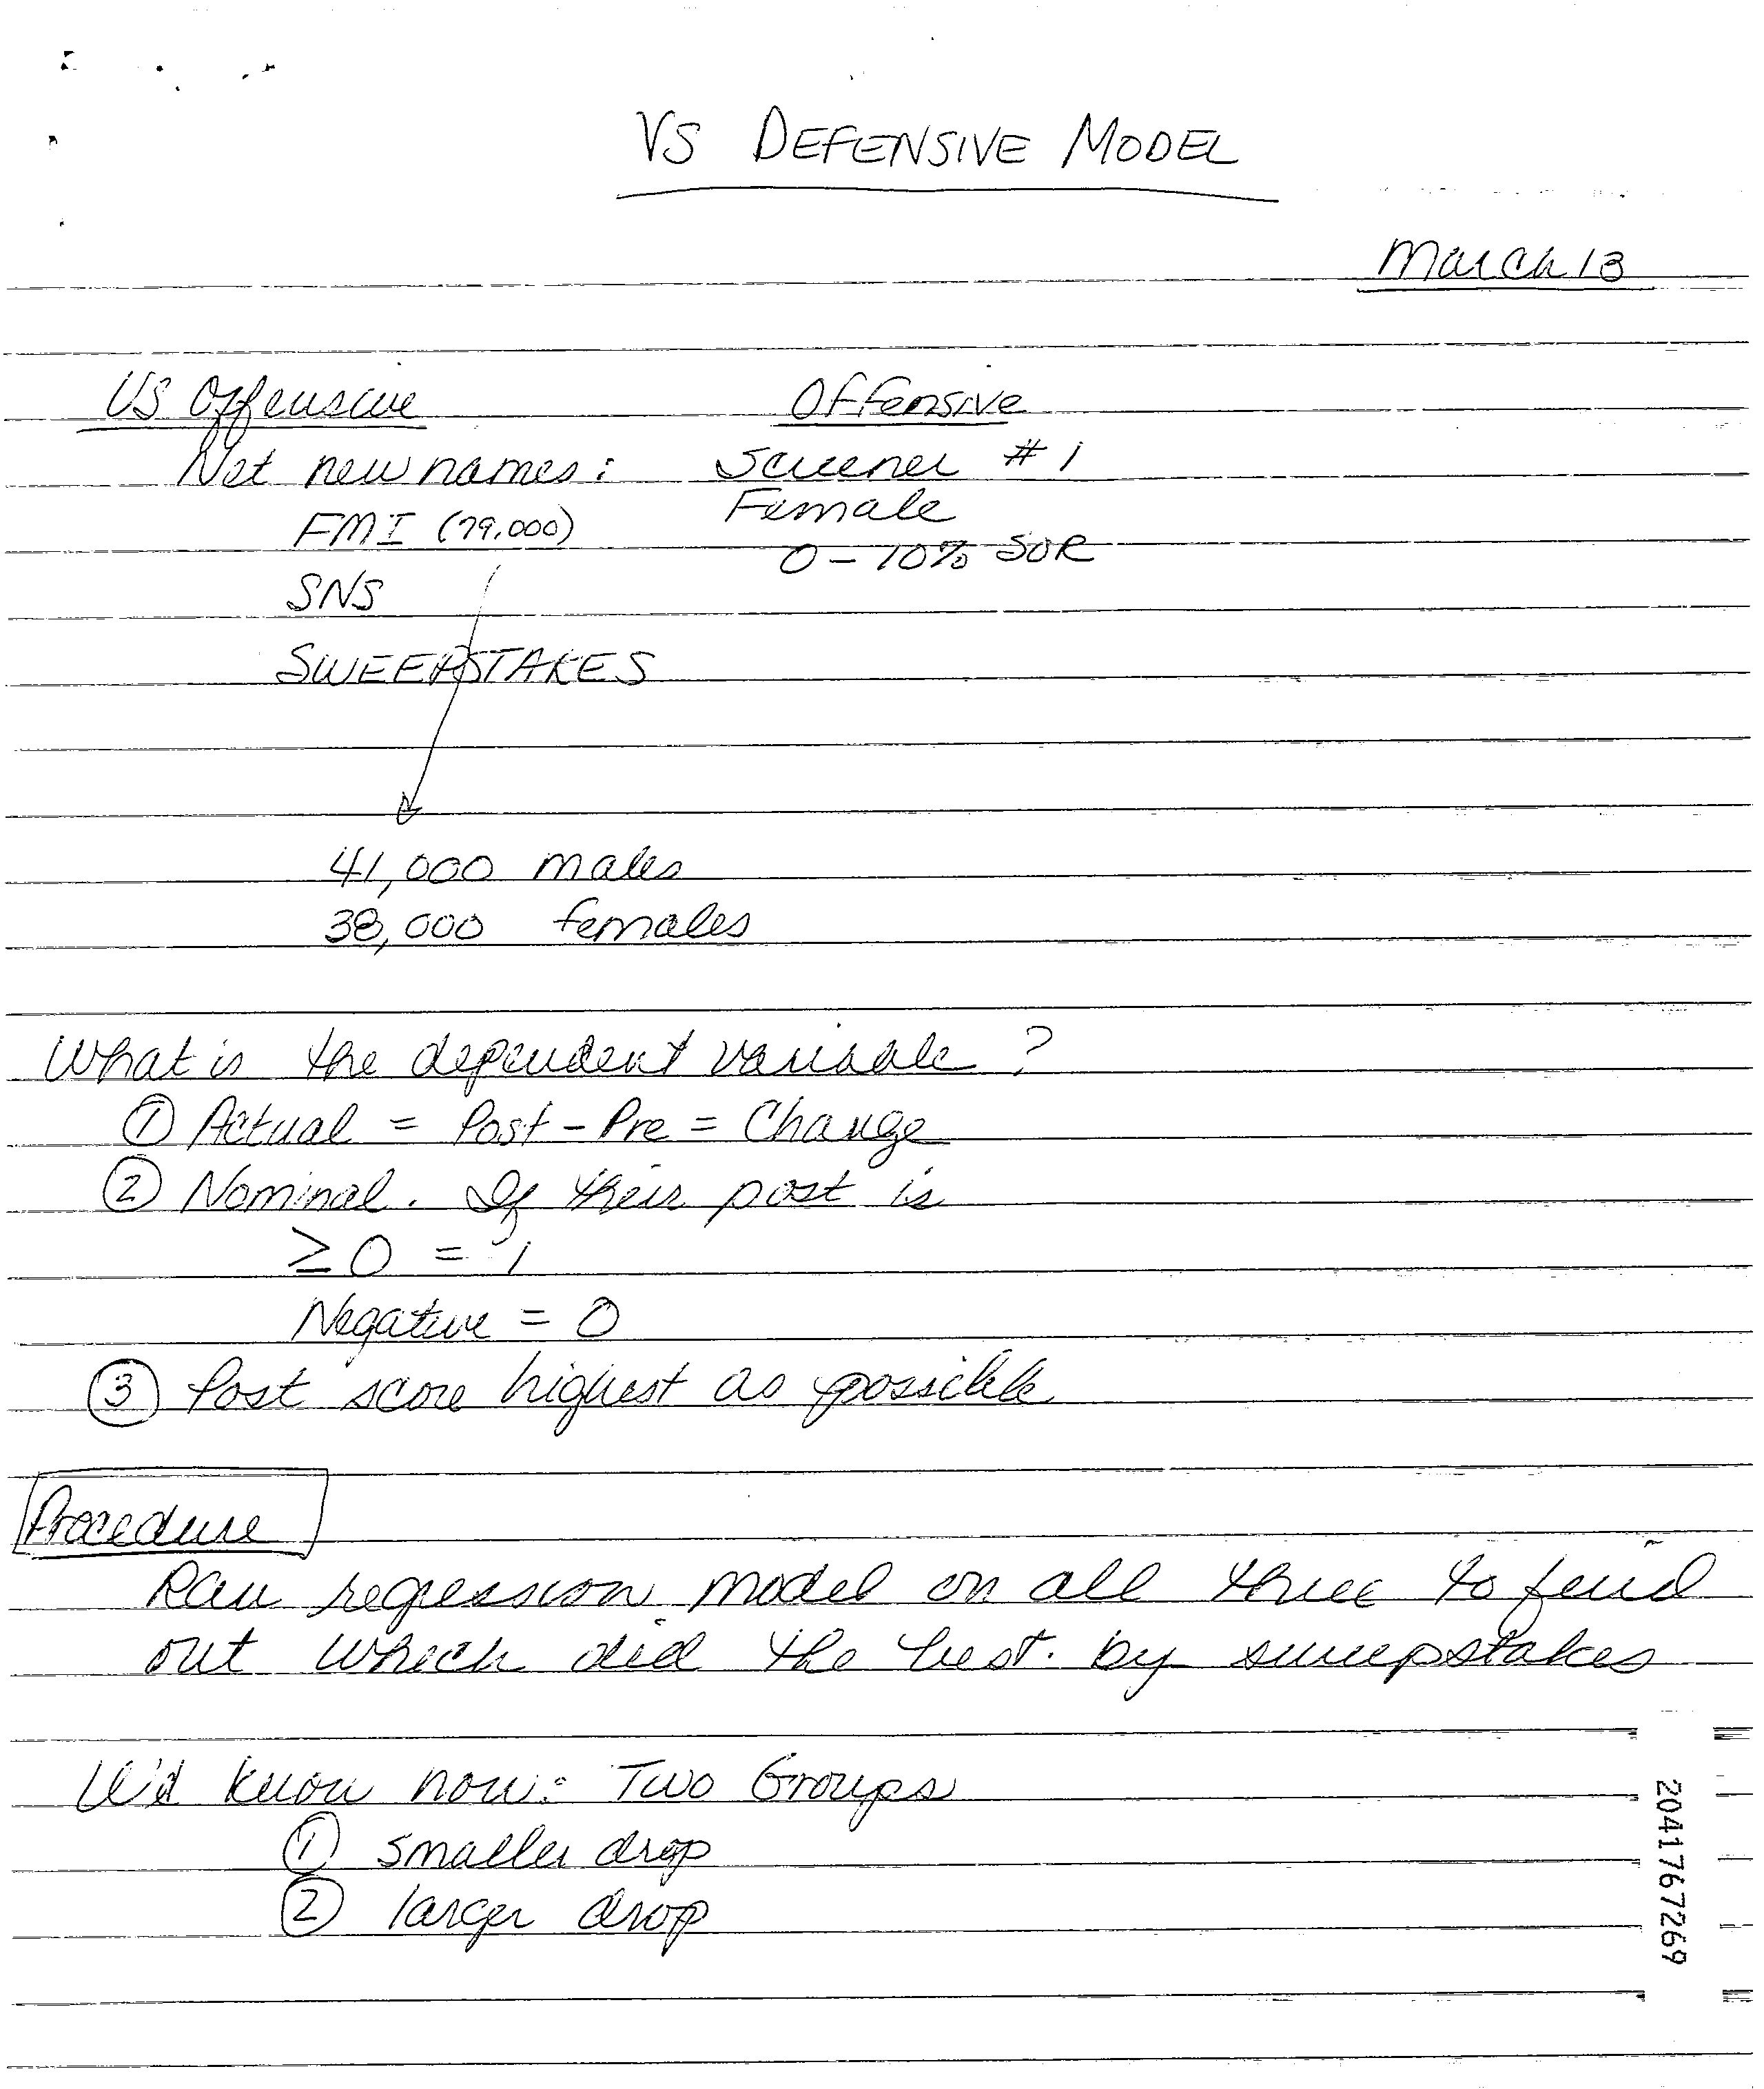 VS DEFENSIVE MODEL
March 13
VS Offensive Offensive
Net new names: Screener #1
FMI (79,000) Female
0-10% SOR
SNS
SWEEPSTAKES
41,000 males
38,000 females
What is the dependent variable?
① Actual = Post - Pre = Change
② Nominal. If their post is
≥ 0 = 1
Negative = 0
③ Post score highest as possible
Procedure
Ran regression model on all three to find
out which did the best. by sweepstakes
We'd know now: Two Groups
① smaller drop
② larger drop
2041767269